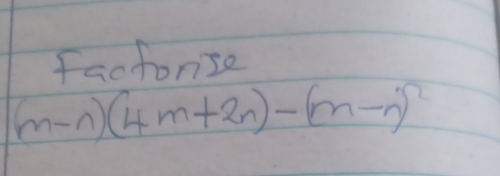 Factorise
(m-n)(4m+2n)-(m-n)²